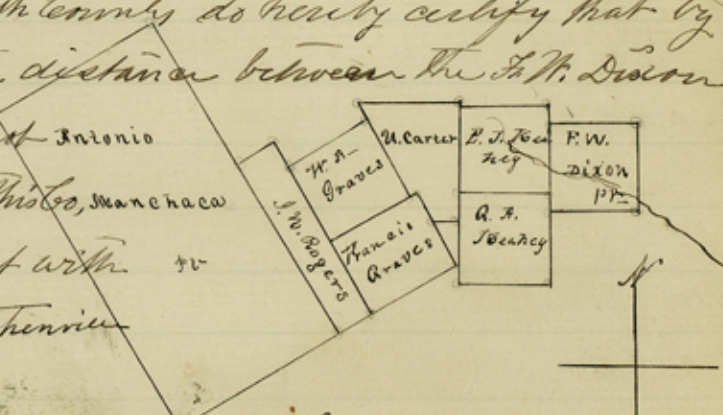 County do hereby certify that by
distance between the F.W. Dixon
of Antonio
this Co, Manchaca
with
J. W. Rogers
W. A.
Graves
Francis
Graves
U. Carter
E. J.
Q. A.
F. W.
Dixon
pr
N